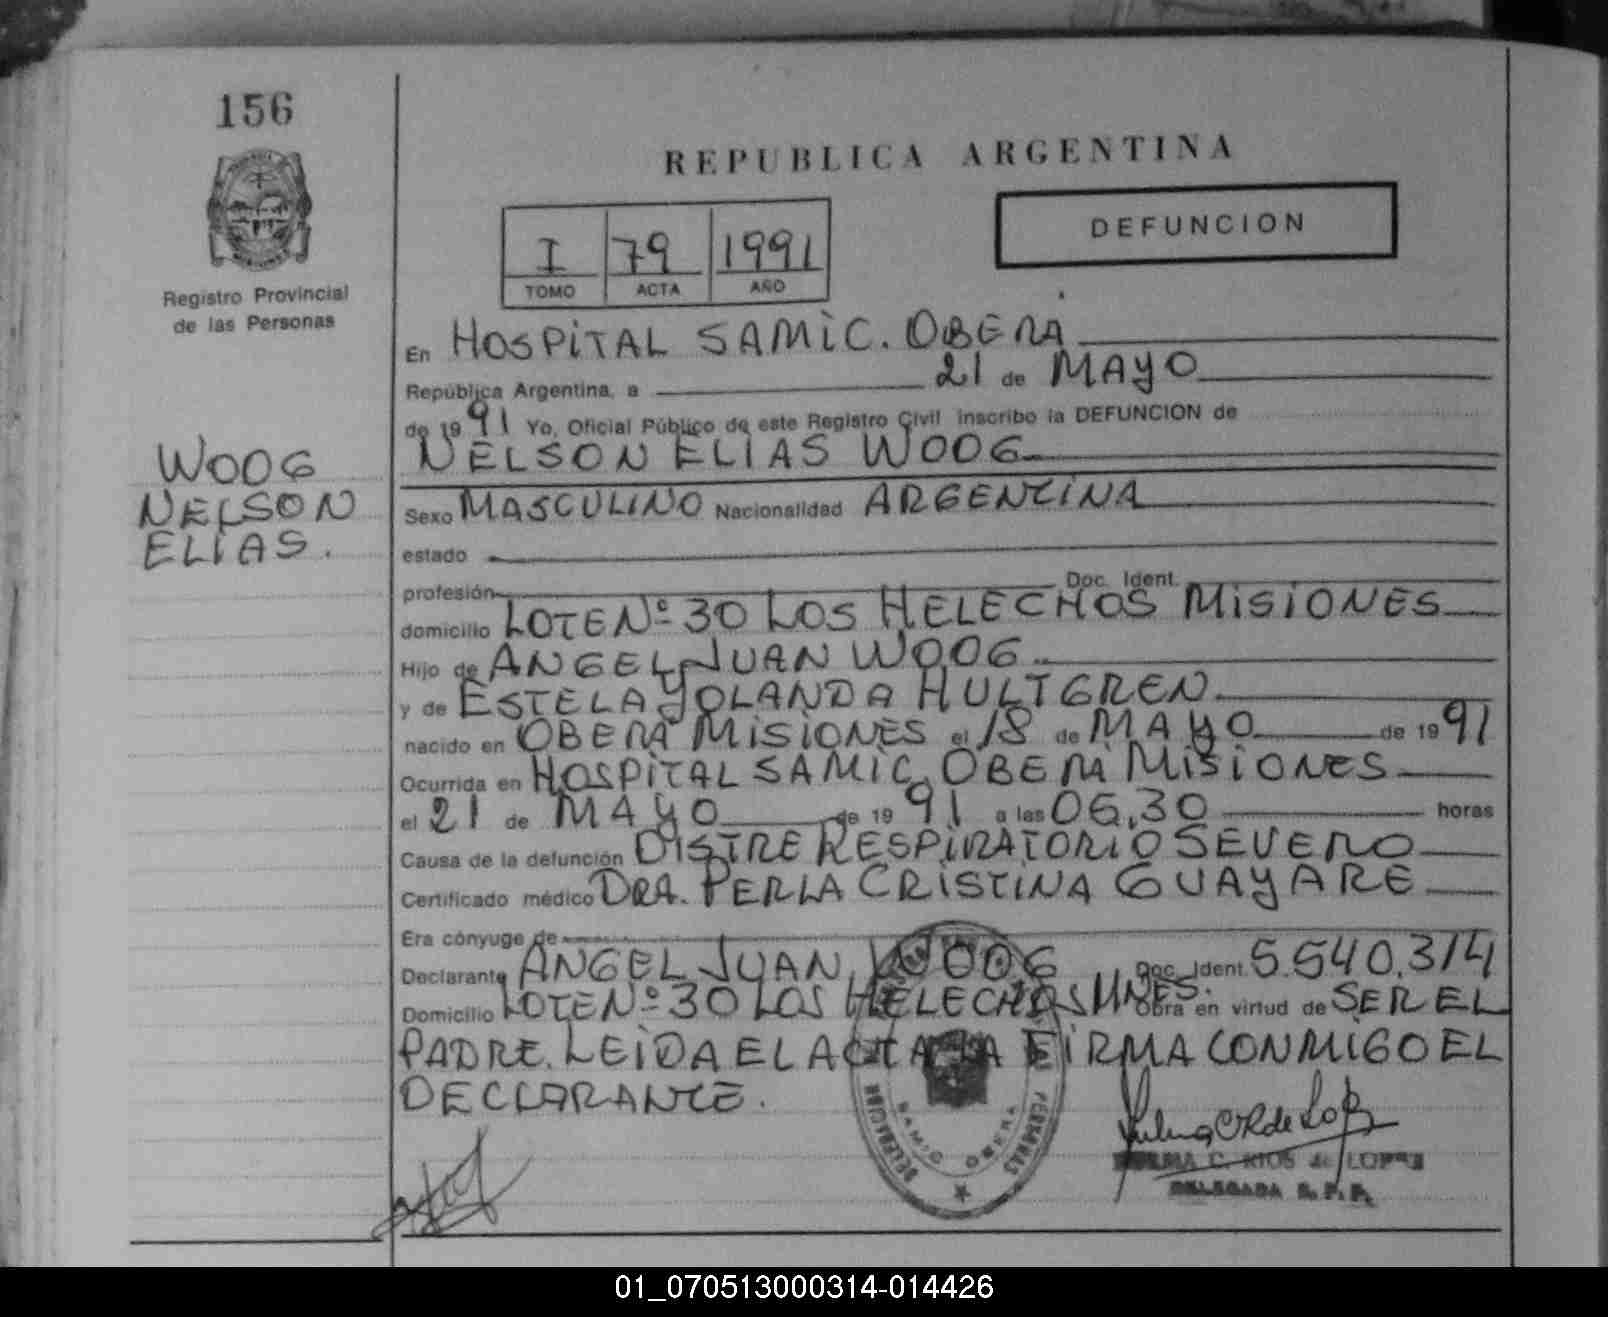 156
REPUBLICA ARGENTINA
DEFUNCION
I 79 1991
TOMO ACTA AÑO
Registro Provincial
de las Personas
WOOG
NELSON
ELIAS.
En HOSPITAL SAMIC. OBERA
República Argentina, a 21 de MAYO
de 1991 Yo, Oficial Público de este Registro Civil inscribo la DEFUNCION de
NELSON ELIAS WOOG
Sexo MASCULINO Nacionalidad ARGENTINA
estado
profesión Doc. Ident.
domicilio LOTE Nº 30 LOS HELECHOS MISIONES
Hijo de ANGEL JUAN WOOG
y de ESTELA YOLANDA HULTGREN
nacido en OBERA MISIONES el 18 de MAYO de 1991
Ocurrida en HOSPITAL SAMIC. OBERA MISIONES
el 21 de MAYO de 1991 a las 06,30 horas
Causa de la defunción DISTRE RESPIRATORIO SEVERO
Certificado médico DRA. PERLA CRISTINA GUAYARE
Era cónyuge de
Declarante ANGEL JUAN WOOG Doc. Ident. 5.540.314
Domicilio LOTE Nº 30 LOS HELECHOS MNES. Obra en virtud de SER EL
PADRE. LEIDA EL ACTA LA FIRMA CONMIGO EL
DECLARANTE.
DELEGACION PERSONAS
SAMIC OBERA
C. RIOS de LOPEZ
DELEGADA R.P.P.
01_070513000314-014426